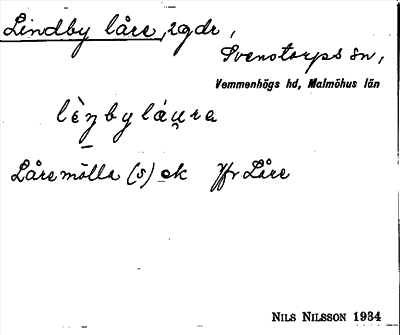 Lindby låre, rgdr,
Svenstorps sn,
Vemmenhögs hd, Malmöhus län
lɛ̀ŋbyláu̯ra
Låremölla (s) ek Jfr Låre
NILS NILSSON 1934